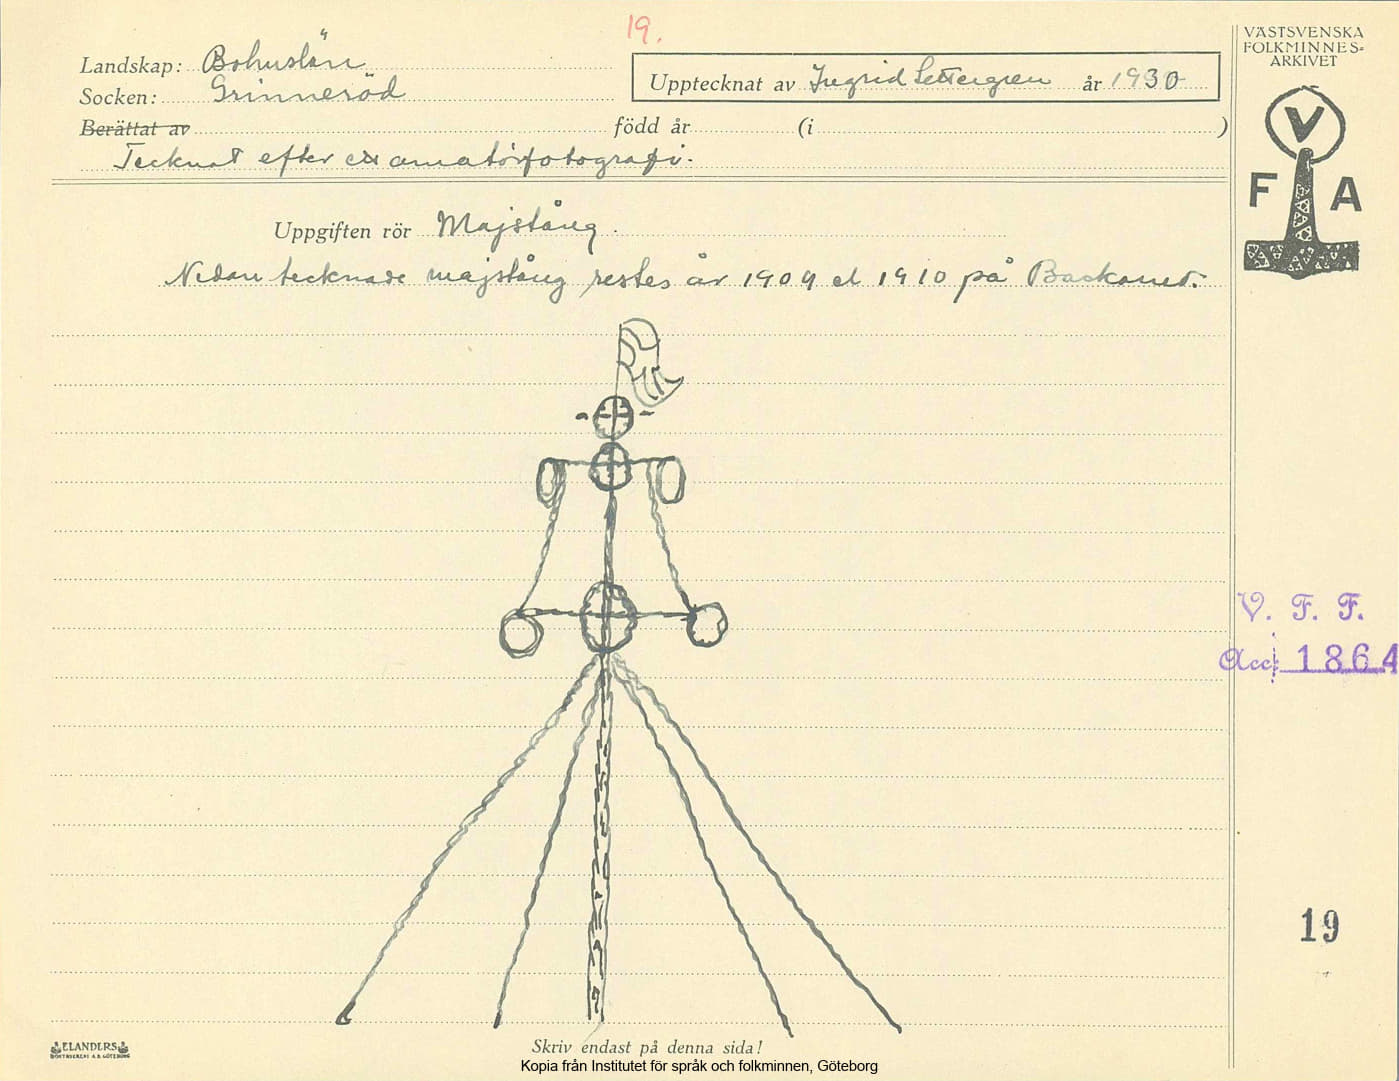 19.
VÄSTSVENSKA
FOLKMINNES-
ARKIVET
Landskap: Bohuslän
Socken: Grinneröd
Upptecknat av Ingrid Settergren år 1930
Berättat av född år (i )
Tecknat efter en amatörfotografi.
V
F A
Uppgiften rör Majstång.
Nedan tecknade majstång restes år 1909 el 1910 på Backamo.
V. F. F.
Acc: 1864
19
ELANDERS
BOKTRYCKERI A.B. GÖTEBORG
Skriv endast på denna sida!
Kopia från Institutet för språk och folkminnen, Göteborg